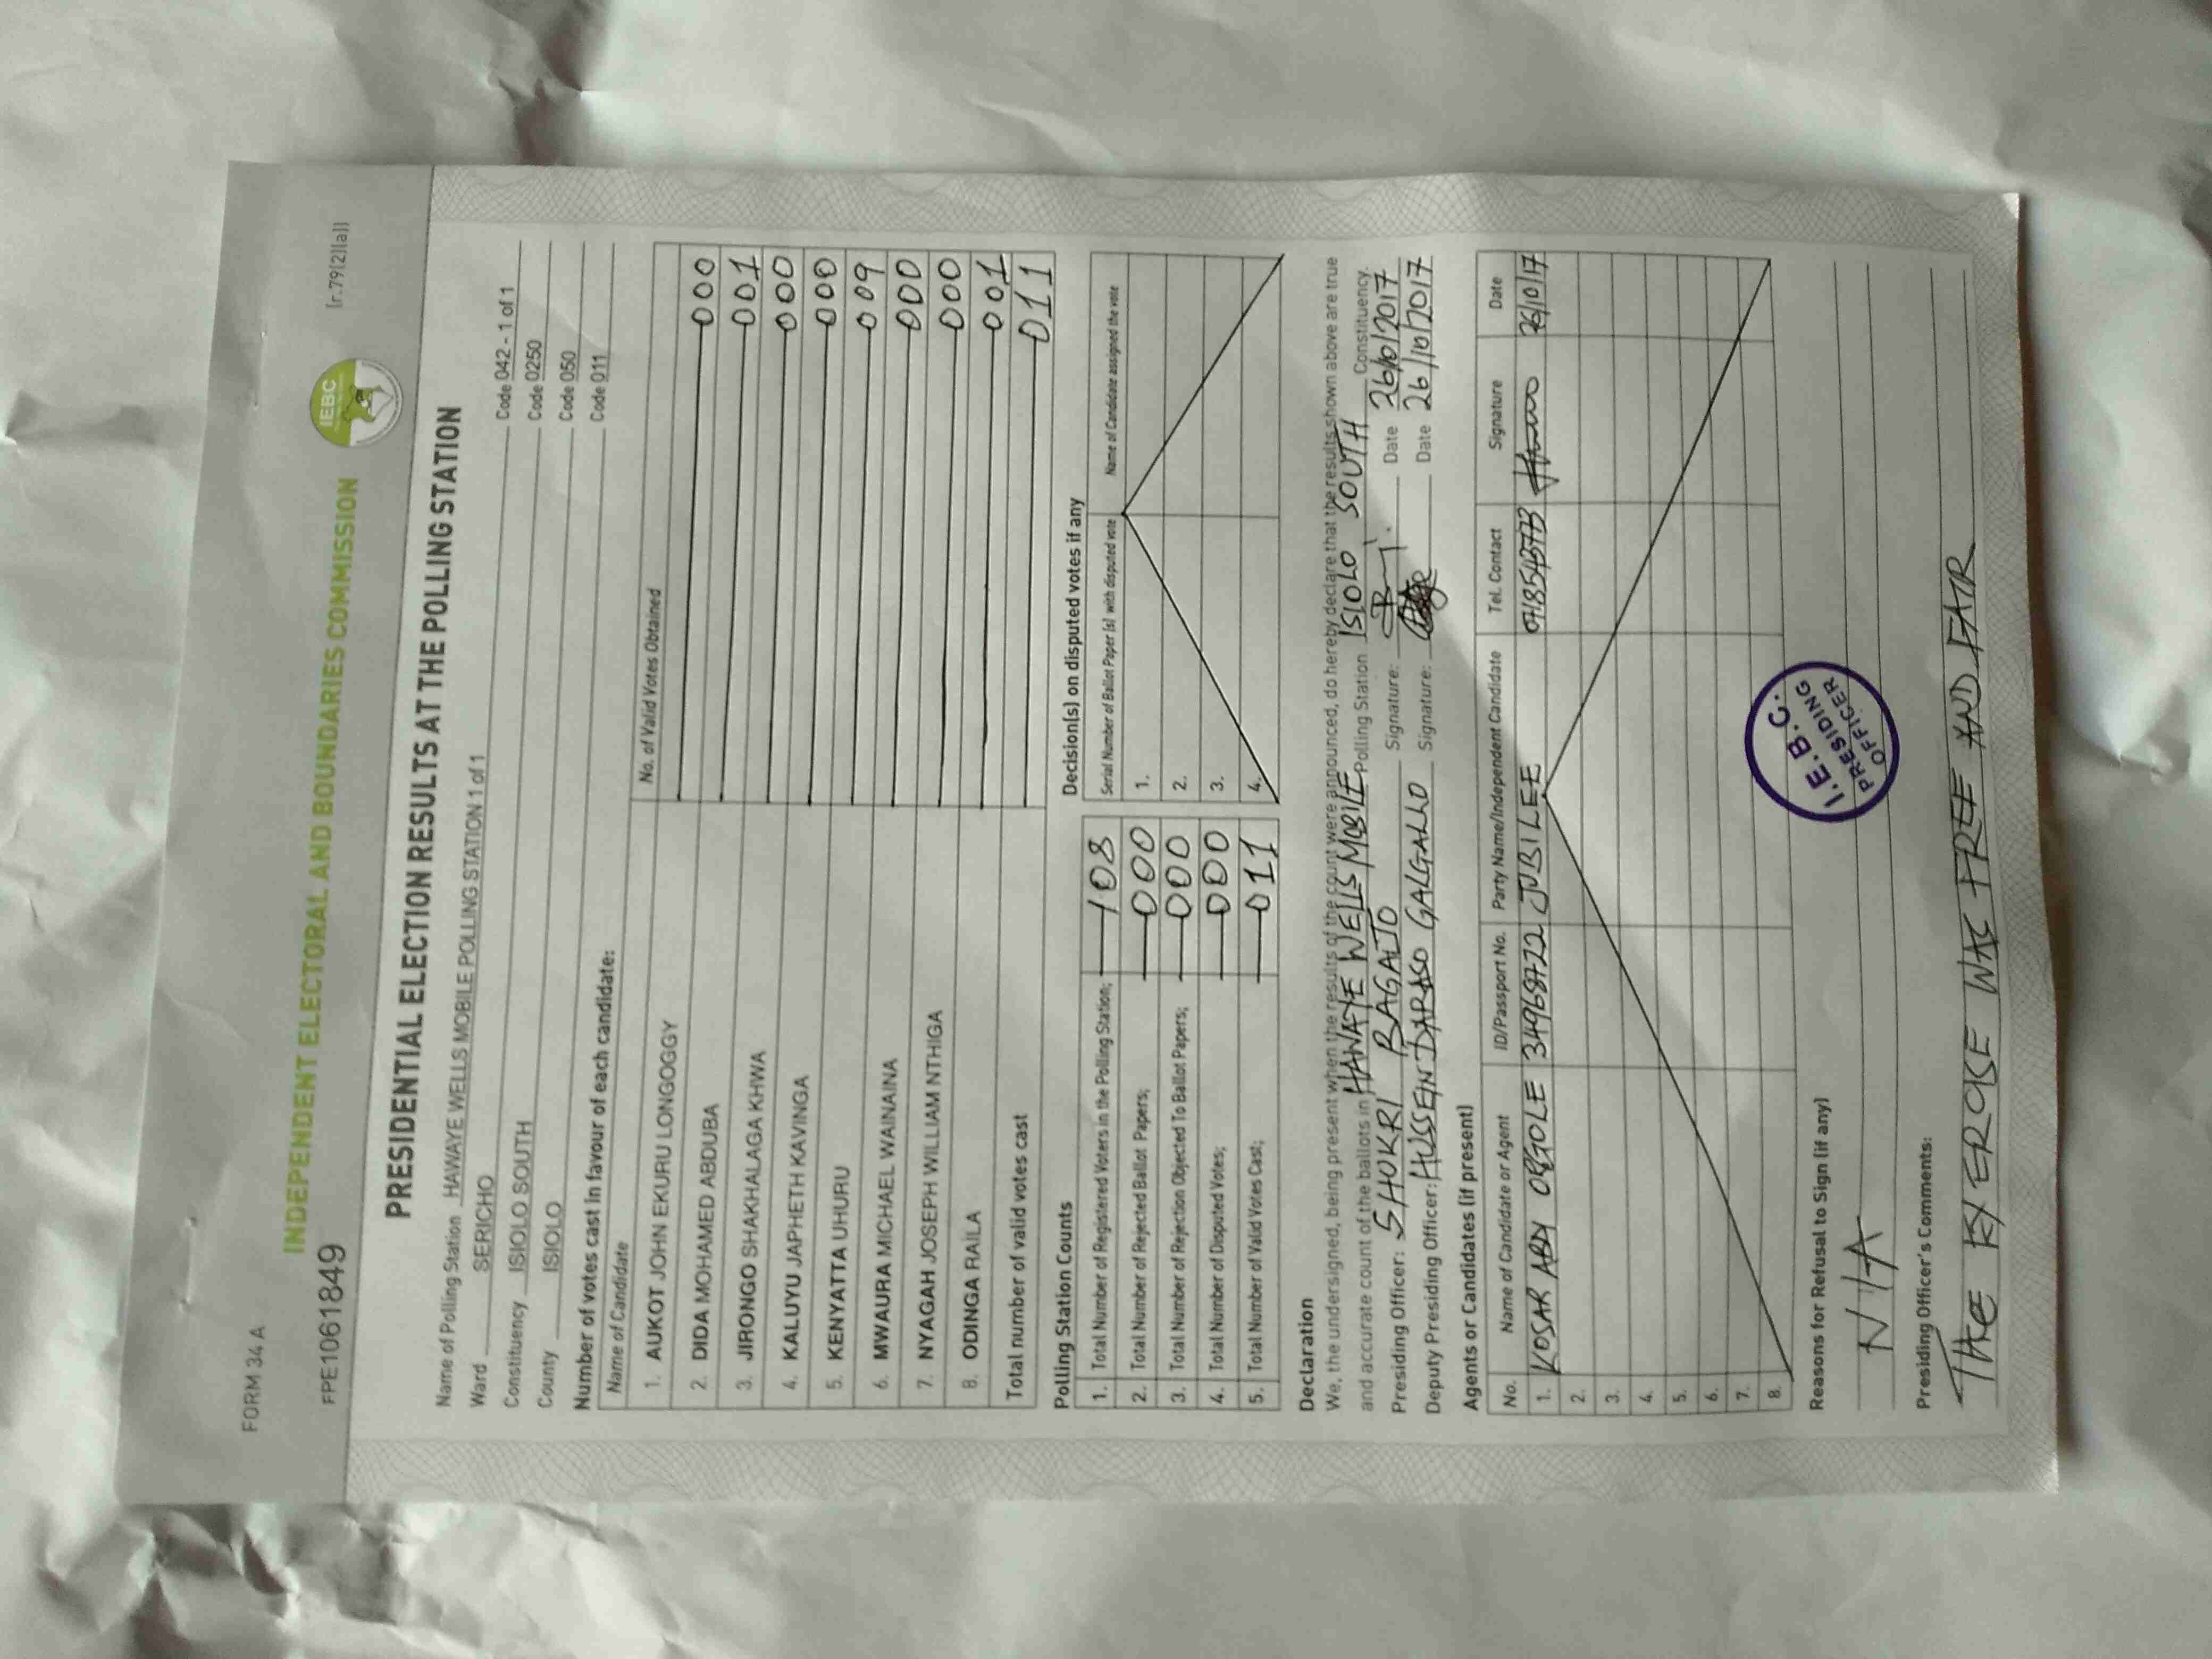 FORM 34 A
INDEPENDENT ELECTORAL AND BOUNDARIES COMMISSION
IEBC
FPE1061849
[r.79(2)(a)]
PRESIDENTIAL ELECTION RESULTS AT THE POLLING STATION
Name of Polling Station HAWAYE WELLS MOBILE POLLING STATION 1 of 1 Code 042 - 1 of 1
Ward SERICHO Code 0250
Constituency ISIOLO SOUTH Code 050
County ISIOLO Code 011
Number of votes cast in favour of each candidate:
Name of Candidate No. of Valid Votes Obtained
1. AUKOT JOHN EKURU LONGOGGY 000
2. DIDA MOHAMED ABDUBA 001
3. JIRONGO SHAKHALAGA KHWA 000
4. KALUYU JAPHETH KAVINGA 000
5. KENYATTA UHURU 009
6. MWAURA MICHAEL WAINAINA 000
7. NYAGAH JOSEPH WILLIAM NTHIGA 000
8. ODINGA RAILA 001
Total number of valid votes cast 011
Polling Station Counts
1. Total Number of Registered Voters in the Polling Station; 108
2. Total Number of Rejected Ballot Papers; 000
3. Total Number of Rejection Objected To Ballot Papers; 000
4. Total Number of Disputed Votes; 000
5. Total Number of Valid Votes Cast; 011
Decision(s) on disputed votes if any
Serial Number of Ballot Paper (s) with disputed vote Name of Candidate assigned the vote
1.
2.
3.
4.
Declaration
We, the undersigned, being present when the results of the count were announced, do hereby declare that the results shown above are true
and accurate count of the ballots in HAWAYE WELLS MOBILE Polling Station ISIOLO SOUTH Constituency.
Presiding Officer: SHUKRI RAGALTO Signature: Date 26/10/2017
Deputy Presiding Officer: HUSSEIN DARASO GALGALLO Signature: Date 26/10/2017
Agents or Candidates (if present)
No. Name of Candidate or Agent ID/Passport No. Party Name/Independent Candidate Tel. Contact Signature Date
1. KOSAR ABDY JUBILEE 26/10/17
2.
3.
4.
5.
6.
7.
8.
I.E.B.C.
PRESIDING
OFFICER
Reasons for Refusal to Sign (if any)
N/A
Presiding Officer's Comments:
THEE EXERCISE WAS FREE AND FAIR